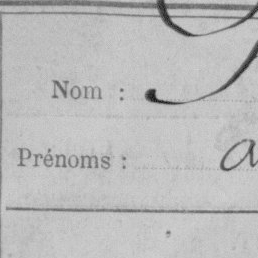 Nom :
Prénoms : a